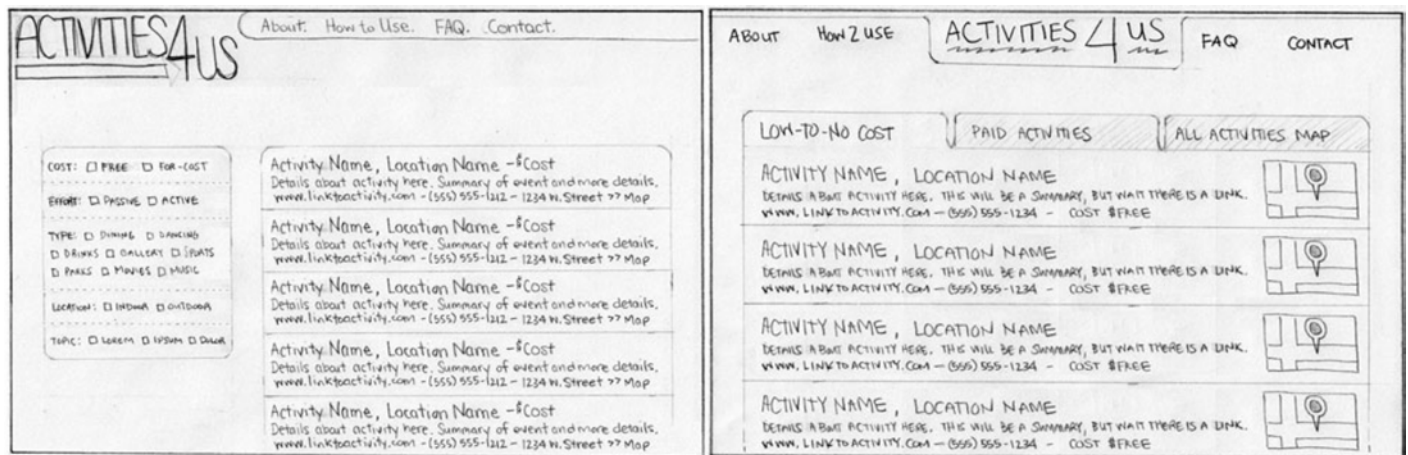 ACTIVITIES 4 US
About. How to Use. FAQ. Contact.
COST: FREE FOR-COST
EFFORT: PASSIVE ACTIVE
TYPE: DINING DANCING
DRINKS GALLERY SPORTS
PARKS MOVIES MUSIC
LOCATION: INDOOR OUTDOOR
TOPIC: LOREM IPSUM DOLOR
Activity Name, Location Name - $Cost
Details about activity here. Summary of event and more details.
www.linktoactivity.com - (555) 555-1212 - 1234 W. Street >> Map
Activity Name, Location Name - $Cost
Details about activity here. Summary of event and more details.
www.linktoactivity.com - (555) 555-1212 - 1234 W. Street >> Map
Activity Name, Location Name - $Cost
Details about activity here. Summary of event and more details.
www.linktoactivity.com - (555) 555-1212 - 1234 W. Street >> Map
Activity Name, Location Name - $Cost
Details about activity here. Summary of event and more details.
www.linktoactivity.com - (555) 555-1212 - 1234 W. Street >> Map
Activity Name, Location Name - $Cost
Details about activity here. Summary of event and more details.
www.linktoactivity.com - (555) 555-1212 - 1234 W. Street >> Map
ABOUT HOW 2 USE ACTIVITIES 4 US FAQ CONTACT
LOW-TO-NO COST PAID ACTIVITIES ALL ACTIVITIES MAP
ACTIVITY NAME, LOCATION NAME
DETAILS ABOUT ACTIVITY HERE. THIS WILL BE A SUMMARY, BUT WAIT THERE IS A LINK.
WWW.LINKTOACTIVITY.COM - (555) 555-1234 - COST $FREE
ACTIVITY NAME, LOCATION NAME
DETAILS ABOUT ACTIVITY HERE. THIS WILL BE A SUMMARY, BUT WAIT THERE IS A LINK.
WWW.LINKTOACTIVITY.COM - (555) 555-1234 - COST $FREE
ACTIVITY NAME, LOCATION NAME
DETAILS ABOUT ACTIVITY HERE. THIS WILL BE A SUMMARY, BUT WAIT THERE IS A LINK.
WWW.LINKTOACTIVITY.COM - (555) 555-1234 - COST $FREE
ACTIVITY NAME, LOCATION NAME
DETAILS ABOUT ACTIVITY HERE. THIS WILL BE A SUMMARY, BUT WAIT THERE IS A LINK.
WWW.LINKTOACTIVITY.COM - (555) 555-1234 - COST $FREE